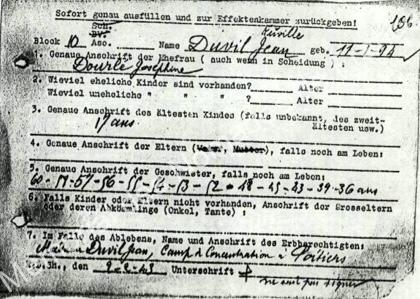 Sofort genau ausfüllen und zur Effektenkammer zurückgeben!
Sch.
Block 10 Aso. Name Duvil Jean geb.
1. Genaue Anschrift der Ehefrau ( auch wenn in Scheidung ) :
Dourle Joséphine
2. Wieviel eheliche Kinder sind vorhanden? Alter
Wieviel uneheliche " " ? Alter
3. Genaue Anschrift des Ältesten Kindes (falls unbekannt, des zweit-
Ältesten usw.)
17 ans
4. Genaue Anschrift der Eltern (Vater, Mutter), falls noch am Leben:
5. Genaue Anschrift der Geschwister, falls noch am Leben:
36 ans
6. Falls Kinder oder Eltern nicht vorhanden, Anschrift der Grosseltern
oder deren Abkömmlinge (Onkel, Tante) :
7. Im Falle des Ablebens, Name und Anschrift des Erbberechtigten:
Duvil Jean, Camp de Concentration à Poitiers
den Unterschrift
ne sait pas signer